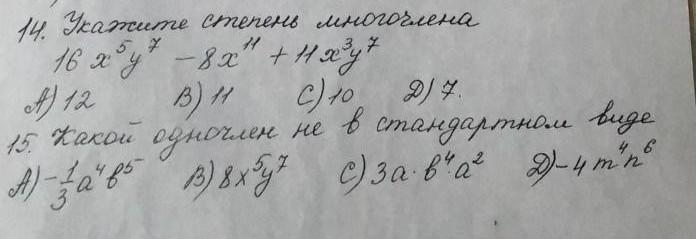 14. Укажите степень многочлена
16 x⁵y⁷ - 8x¹¹ + 11x³y⁷
А) 12 В) 11 С) 10 Д) 7.
15. Какой одночлен не в стандартном виде
А) -1/3 a⁴b⁵ В) 8x⁵y⁷ С) 3a·b⁴·a² Д) -4m⁴n⁶